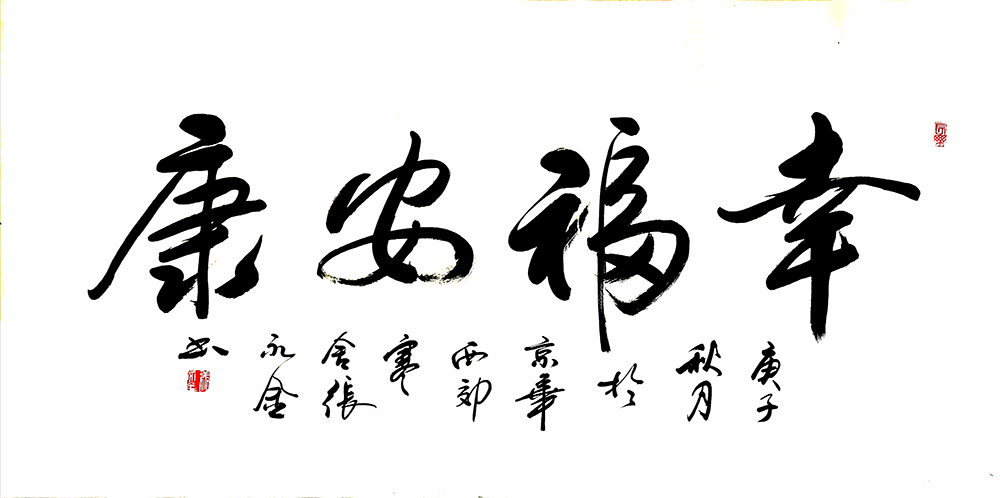 幸福安康
庚子
秋月
於
京華
西郊
寒
舍張
永金
书